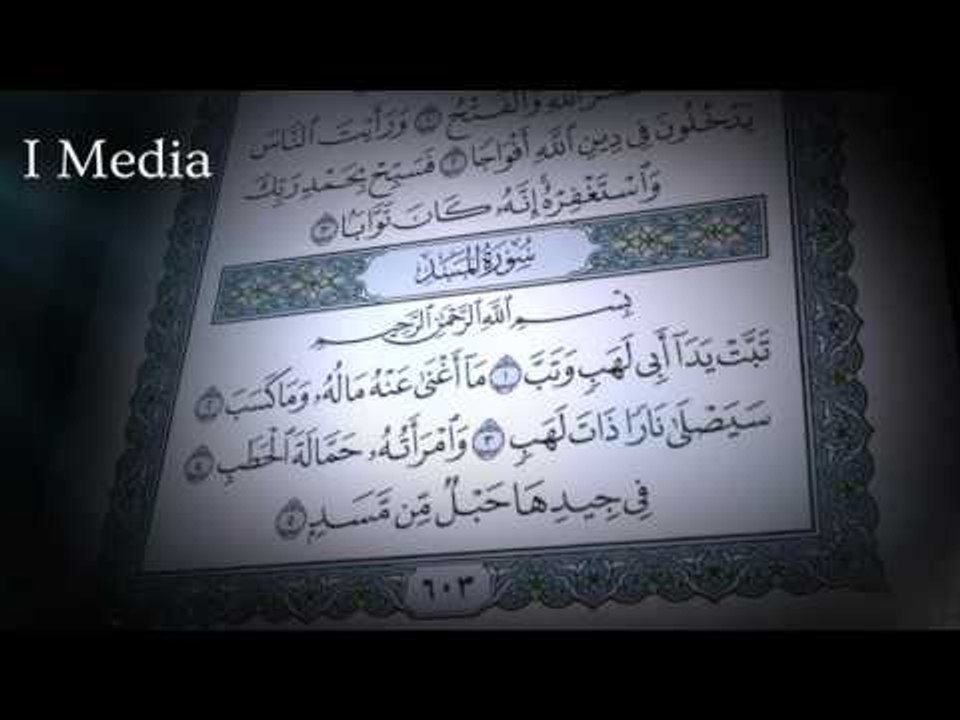 I Media
وَٱلْفَتْحُ ١ وَرَأَيْتَ ٱلنَّاسَ
يَدْخُلُونَ فِى دِينِ ٱللَّهِ أَفْوَاجًا ٢ فَسَبِّحْ بِحَمْدِ رَبِّكَ
وَٱسْتَغْفِرْهُ إِنَّهُۥ كَانَ تَوَّابًۢا ٣
سُورَةُ المَسَدِ
بِسْمِ ٱللَّهِ ٱلرَّحْمَٰنِ ٱلرَّحِيمِ
تَبَّتْ يَدَآ أَبِى لَهَبٍ وَتَبَّ ١ مَآ أَغْنَىٰ عَنْهُ مَالُهُۥ وَمَا كَسَبَ ٢
سَيَصْلَىٰ نَارًا ذَاتَ لَهَبٍ ٣ وَٱمْرَأَتُهُۥ حَمَّالَةَ ٱلْحَطَبِ ٤
فِى جِيدِهَا حَبْلٌ مِّن مَّسَدٍۭ ٥
٦٠٣